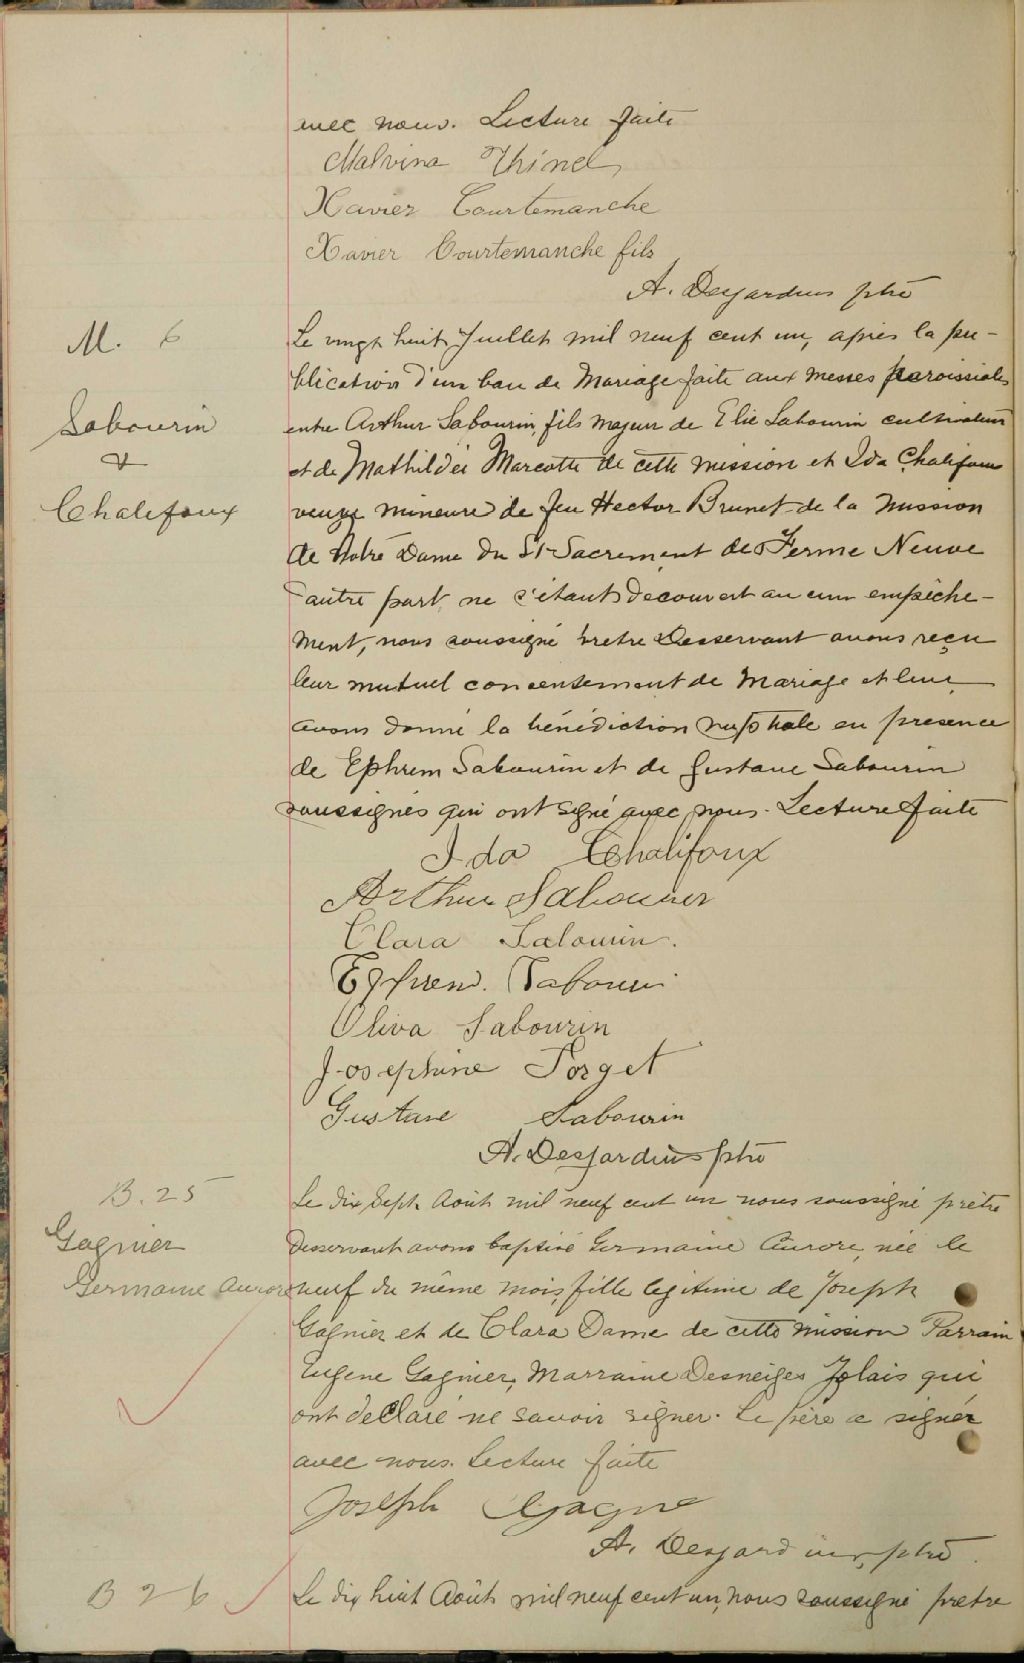 avec nous. Lecture faite
Malvina Thinel
Xavier Courtemanche
Xavier Courtemanche fils
A. Desjardins ptre
M. 6
Sabourin
&
Chalifoux
Le vingt huit Juillet mil neuf cent un, après la pu-
blication d'un ban de Mariage faite aux messes paroissiales
entre Arthur Sabourin, fils majeur de Elie Sabourin cultivateur
et de Mathilde Marcotte de cette mission et Ida Chalifoux
veuve mineure de feu Hector Brunet de la mission
de Notre Dame du St Sacrement de Ferme Neuve
d'autre part, ne s'étant découvert aucun empêche-
ment, nous soussigné prêtre Desservant avons reçu
leur mutuel consentement de Mariage et leur
avons donné la bénédiction nuptiale en présence
de Ephrem Sabourin et de Gustave Sabourin
soussignés qui ont signé avec nous. Lecture faite
Ida Chalifoux
Arthur Sabourin
Clara Sabourin.
Ephrem. Sabourin
Oliva Sabourin
Josephine Forget
Gustave Sabourin
A. Desjardins ptre
B. 25
Gagnier
Germaine Aurore
Le dix Sept Août mil neuf cent un nous soussigné prêtre
Desservant avons baptisé Germaine Aurore, née le
neuf du même mois, fille légitime de Joseph
Gagnier et de Clara Dame de cette mission Parrain
Eugène Gagnier, Marraine Desneiges Jolais qui
ont déclaré ne savoir signer. Le père a signé
avec nous. Lecture faite
Joseph Gagne
A. Desjardins, ptre.
B 26
Le dix huit Août mil neuf cent un, nous soussigné prêtre